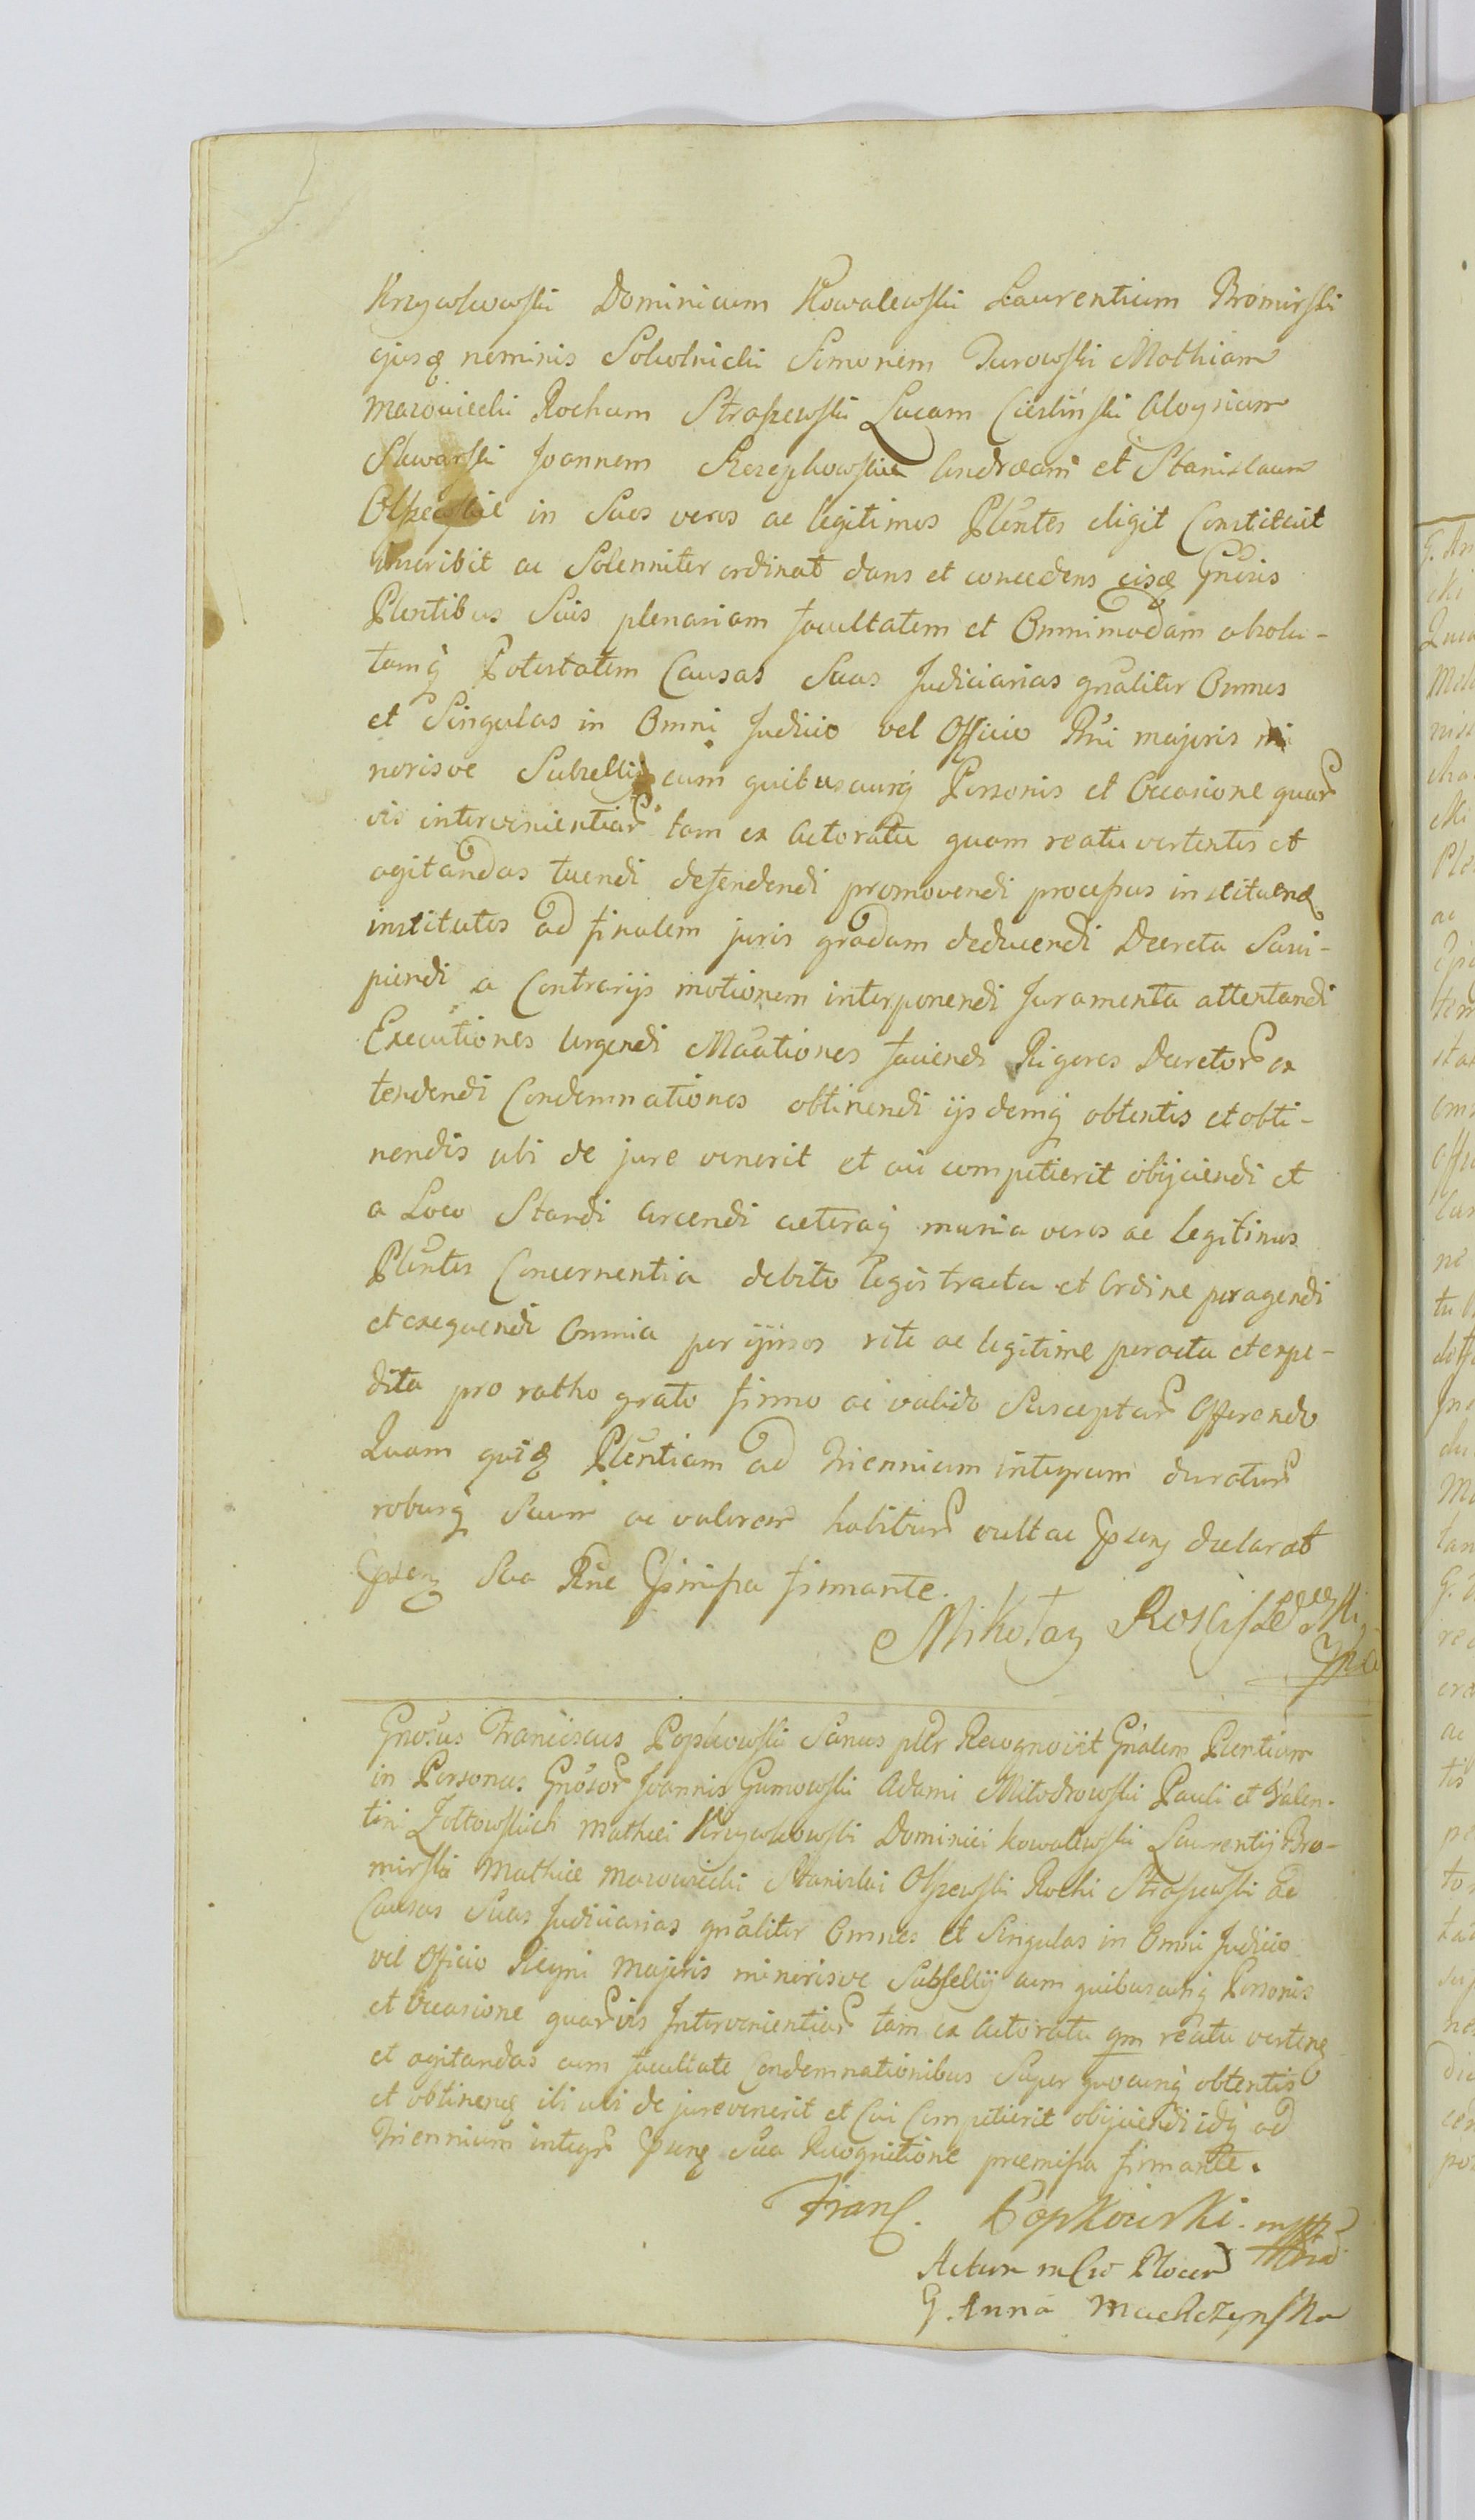 Krzywkowski Dominicum Kowalewski Laurentium Bromirski
ejusq nominis Sokolnicki Simonem Turowski Mathiam
Mazowiecki Rochum Straszewski Lucam Cieslinski Aloysium
Skwarski Joannem Andræam et Stanislaum
in Suos veros ac legitimos Plentes eligit Constituit
inscribit ac Solenniter ordinat dans et concedens eisq Gnosis
Plentibus Suis plenariam facultatem et Omnimodam absolu-
tamq Potestatem Causas Suas Judiciarias gnaliter Omnes
et Singulas in Omni Judicio vel Officio Rni majoris mi
norisve Subsellij cum quibuscunq Personis et Occasione quar
vis intervenientiar tam ex Actoratu quam reatu vertentes et
agitandas tuendi defendendi promovendi processus instituend
institutos ad finalem juris gradum deducendi Decreta Susci-
piendi a Contrarijs motionem interponendi Juramenta attentandi
Executiones Urgendi faciendi Rigores Decretor ex
tendendi Condemnationes obtinendi ijsdemq obtentis et obti-
nendis ubi de jure venerit et cui competierit obijciendi et
a Loco Standi arcendi cæteraq munia veros ac legitimos
Plentes Concernentia debito legis tractu et Ordine peragendi
et exequendi Omnia per ipsos rite ac legitime peracta et expe-
dita pro ratho grato firmo ac valido Susceptur Offerendo
Quam quidq Plentiam ad Triennium integrum duratur
roburq Suum ac valorem habitur vult ac Psenq declarat
Psenq Sua Rne Pmissa firmante.
Mikołay Rosciszewski
Gnosus Franciscus Popkowski Sanus pltr Recognovit Gnalem Plentiam
in Personas Gnosor Joannis Gumowski Adami Miłodrowski Pauli et Valen-
tini Żołtowskich Mathiei Krzywkowski Dominici Kowalewski Laurentij Bro-
mirski Mathiæ Mazowiecki Stanislai Olszewski Rochi Straszewski ad
Causas Suas Judiciarias gnaliter Omnes et Singulas in Omni Judicio
vel Officio Regni Majoris minorisve Subsellij cum quibuscunq Personis
et Occasione quarvis Intervenientiar tam ex Actoratu qm reatu verten
et agitandas cum facultate Condemnationibus Super quocunq obtentis
et obtinend ibi ubi de jure venerit et Cui Competierit obijciendi idq ad
Triennium integr Psenq Sua Recognitione præmissa firmante.
Franc. Popkowski mpp
Actum in Cro Plocen
G. Anna Machczynska